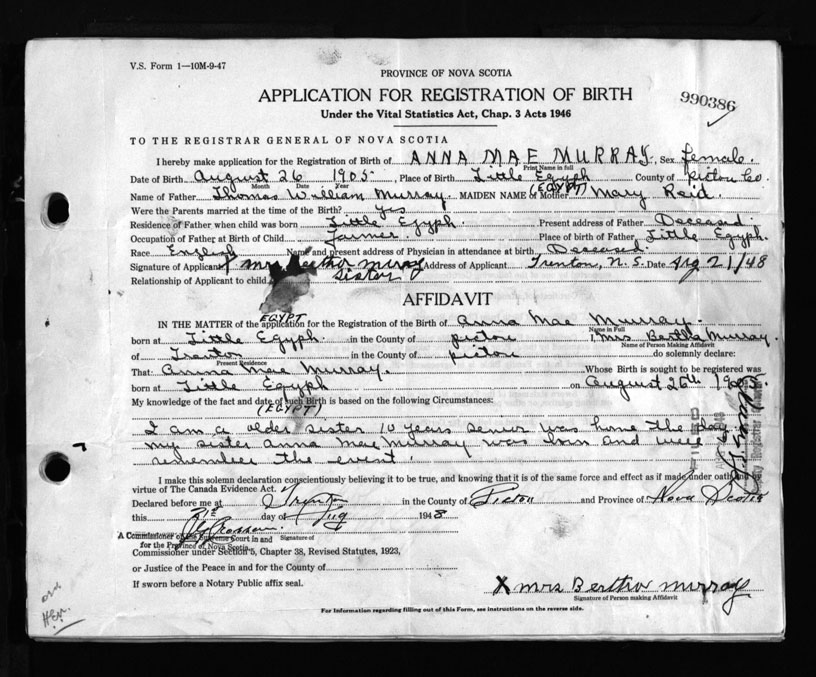 V.S. Form 1—10M-9-47
PROVINCE OF NOVA SCOTIA
APPLICATION FOR REGISTRATION OF BIRTH
990386
Under the Vital Statistics Act, Chap. 3 Acts 1946
TO THE REGISTRAR GENERAL OF NOVA SCOTIA
I hereby make application for the Registration of Birth of ANNA MAE MURRAY, Sex female.
Print Name in full
Date of Birth August 26 1905, Place of Birth Little Egyph County of Pictou Co
Month Date Year (EGYPT)
Name of Father Thomas William Murray. MAIDEN NAME of Mother Mary Reid.
Were the Parents married at the time of the Birth? yes
Residence of Father when child was born Little Egyph. Present address of Father Deceased.
Occupation of Father at Birth of Child Farmer Place of birth of Father Little Egyph.
Race English Name and present address of Physician in attendance at birth Deceased.
Signature of Applicant Mrs Bertha Murray Address of Applicant Trenton, N.S. Date Aug 21/48
Relationship of Applicant to child sister
AFFIDAVIT
EGYPT
IN THE MATTER of the application for the Registration of the Birth of Anna Mae Murray.
Name in Full
born at Little Egyph. in the County of pictou, Mrs Bertha Murray.
Name of Person Making Affidavit
of Trenton in the County of pictou do solemnly declare:
Present Residence
That: Anna Mae Murray. Whose Birth is sought to be registered was
born at Little Egyph on August 26th 1905.
My knowledge of the fact and date of such Birth is based on the following Circumstances:
(EGYPT)
I am a older sister 10 years senior was home the day
my sister anna Mae Murray was born and well
remember the event.
I make this solemn declaration conscientiously believing it to be true, and knowing that it is of the same force and effect as if made under oath and by
virtue of The Canada Evidence Act.
Declared before me at Trenton in the County of Pictou and Province of Nova Scotia
this 21st day of Aug 1948
A Commissioner of the Supreme Court in and Signature of
for the Province of Nova Scotia.
Commissioner under Section 5, Chapter 38, Revised Statutes, 1923,
or Justice of the Peace in and for the County of
If sworn before a Notary Public affix seal.
X Mrs Bertha Murray
Signature of Person making Affidavit
For Information regarding filling out of this Form, see instructions on the reverse side.